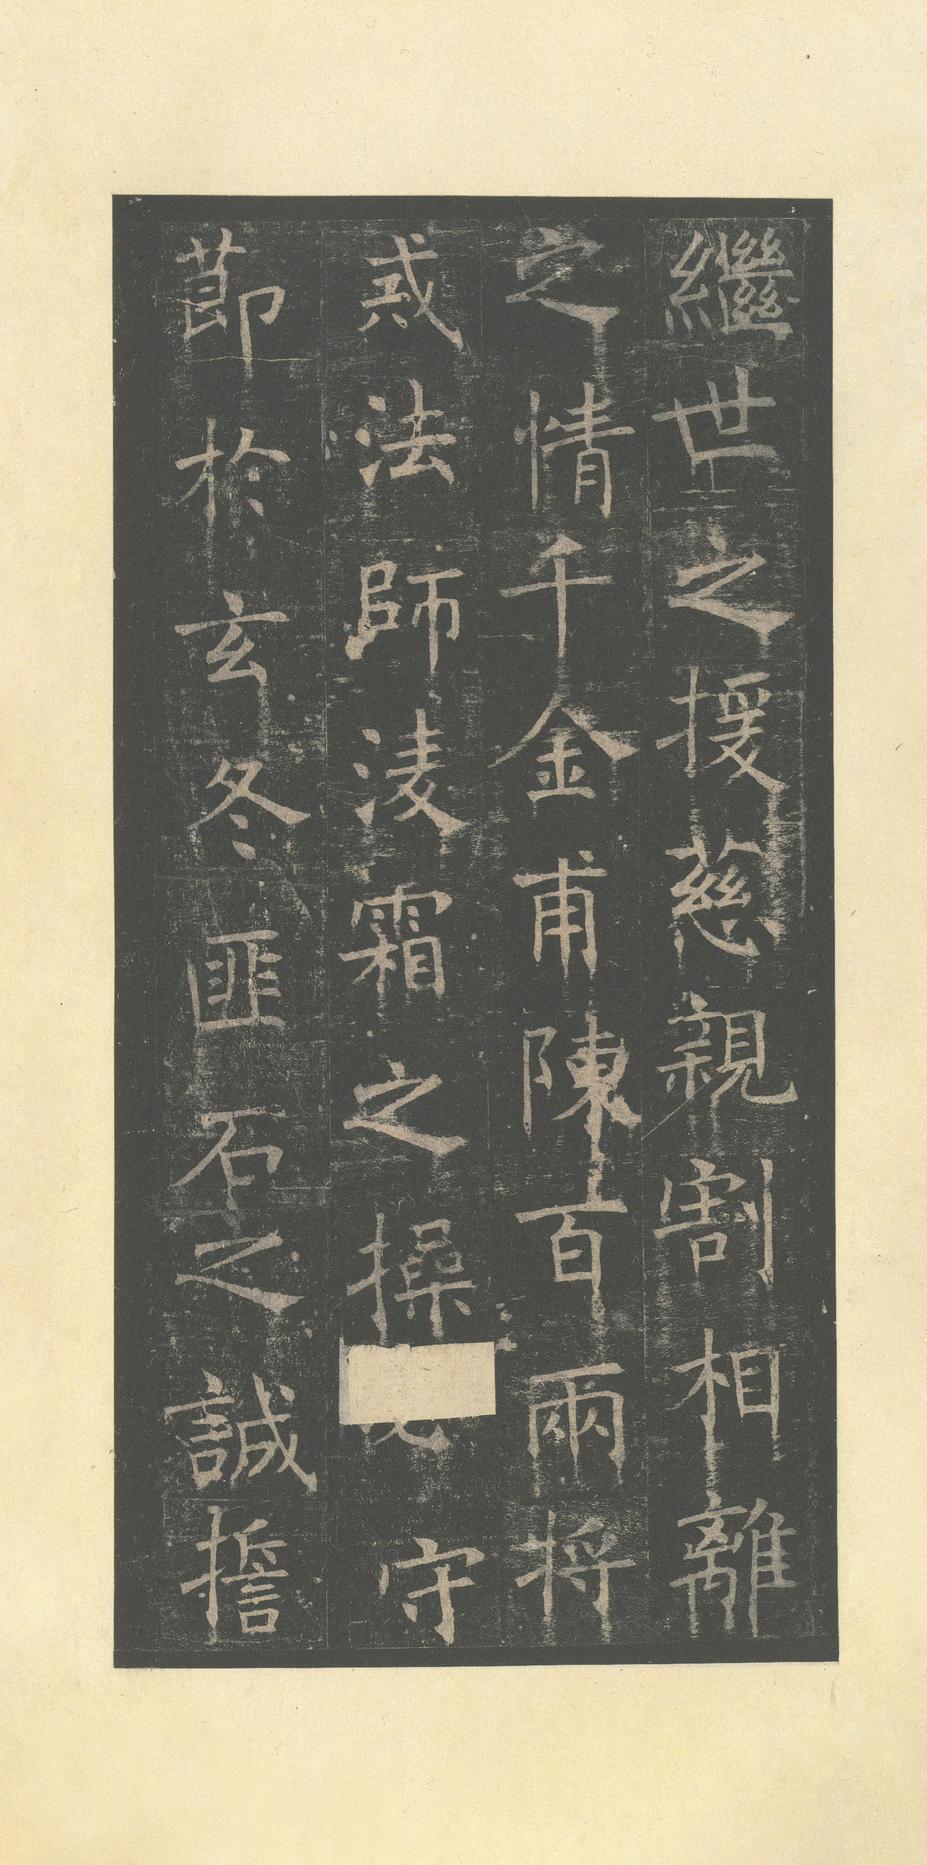 繼世之援慈親割相離
之情千金甫陳百兩將
戒法師淩霜之操守
莭於玄冬匪石之誠擔